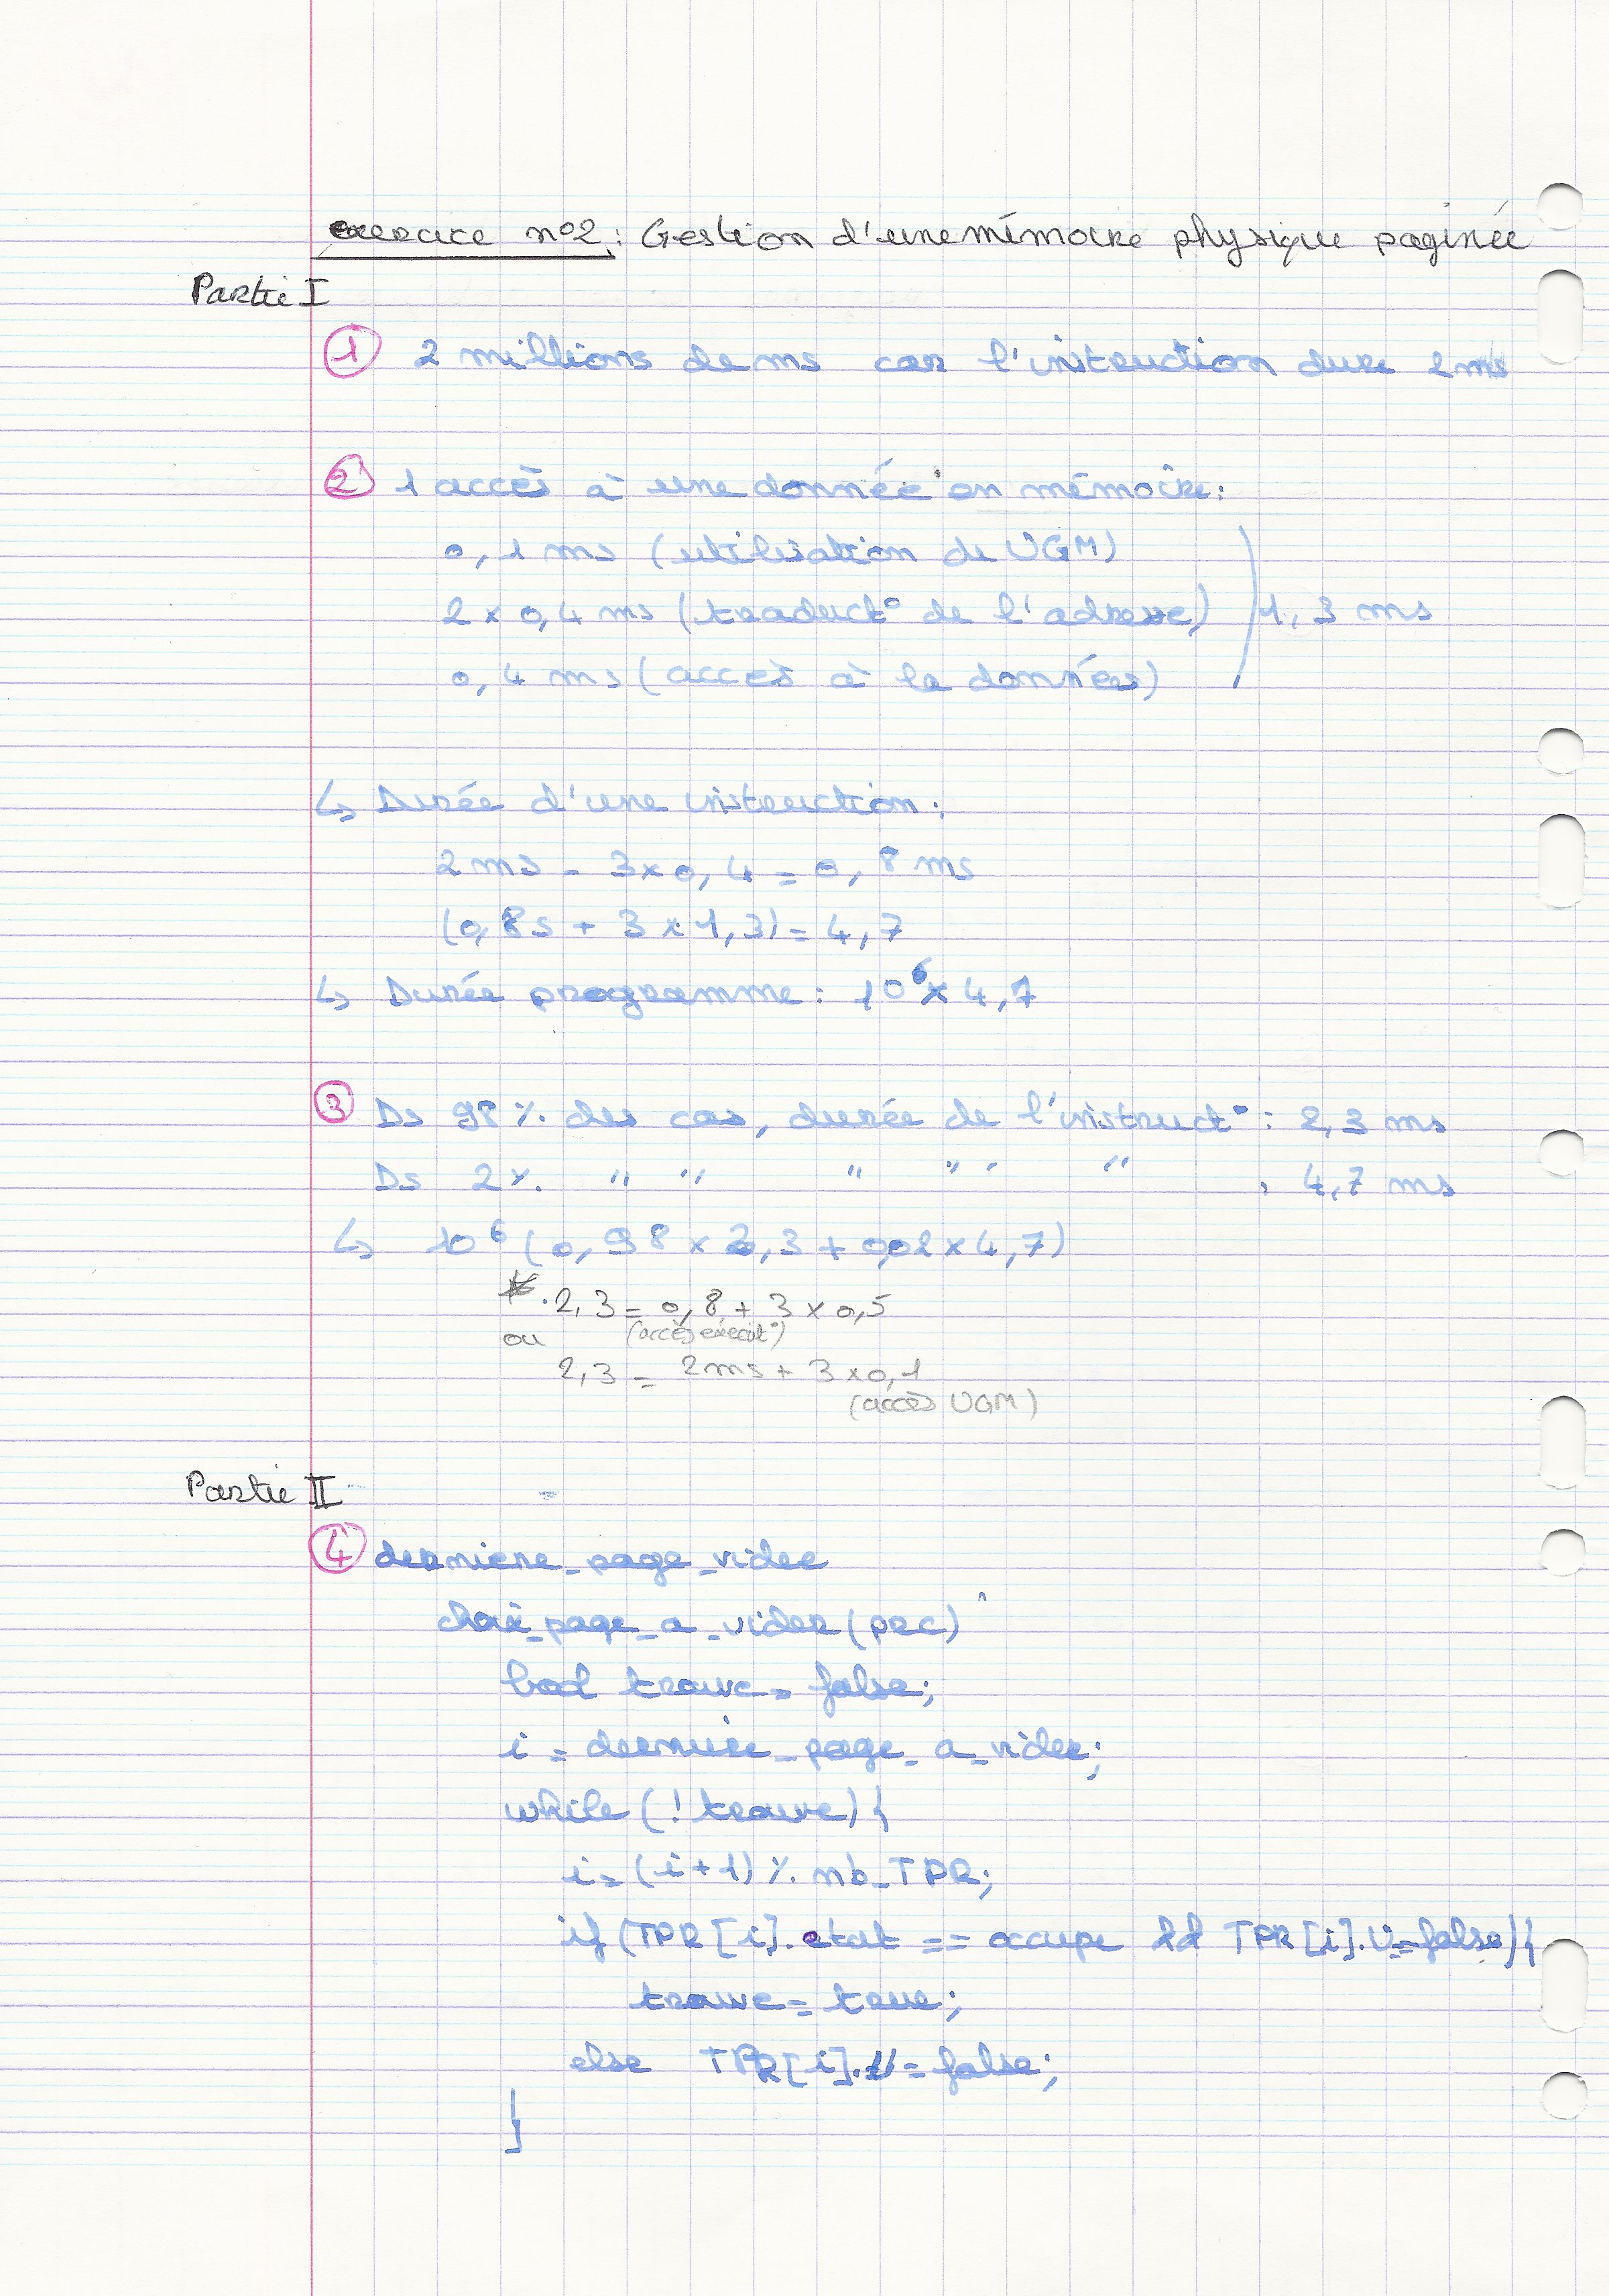 exercice n°2 : Gestion d'une mémoire physique paginée
Partie I
① 2 millions de ms car l'instruction dure 2ms
② 1 accès à une donnée en mémoire :
0,1 ms (utilisation de UGM)
2 x 0,4 ms (traduct° de l'adresse) 1,3 ms
0,4 ms (accès à la données)
↳ Durée d'une instruction :
2 ms - 3x0,4 = 0,8 ms
(0,8s + 3 x 1,3) = 4,7
↳ Durée programme : 10⁶ x 4,7
③ Ds 98 % des cas, durée de l'instruct° : 2,3 ms
Ds 2% " " " " " " : 4,7 ms
↳ 10⁶ (0,98 x 2,3 + 0,02 x 4,7)
* . 2,3 = 0,8 + 3 x 0,5
ou (accès exécut°)
2,3 = 2ms + 3 x 0,1
(accès UGM)
Partie II
④ derniere_page_videe
choix_page_a_vider (prc)
bool trouve = false;
i = derniere_page_a_videe;
while (! trouve) {
i = (i+1) % nb_TPR;
if (TPR[i].etat == occupe && TPR[i].U = false) {
trouve = true;
else TPR[i].U = false;
}